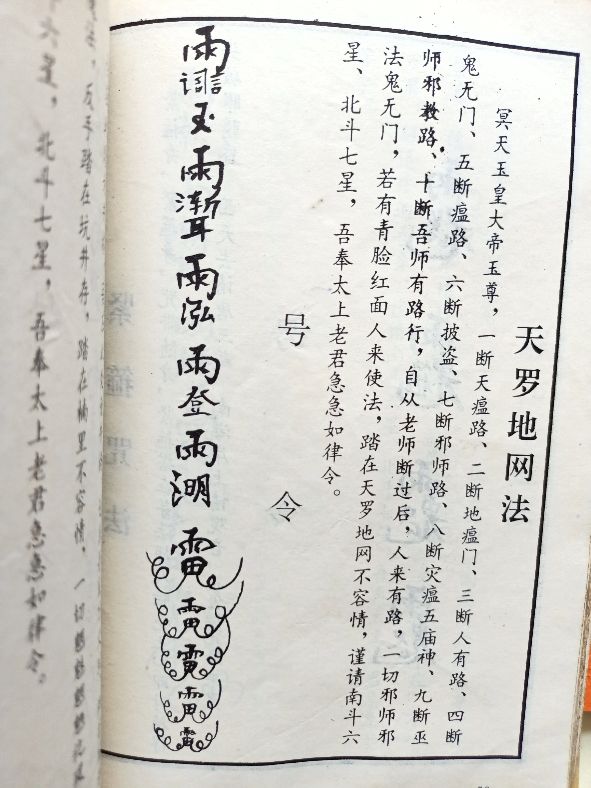 天罗地网法
冥天玉皇大帝玉尊，一断天瘟路、二断地瘟门、三断人有路、四断
鬼无门、五断瘟路、六断披盗、七断邪师路、八断灾瘟五庙神、九断巫
师邪教路、十断吾师有路行，自从老师断过后，人来有路，一切邪师邪
法鬼无门，若有青脸红面人来使法，踏在天罗地网不容情，谨请南斗六
星、北斗七星，吾奉太上老君急急如律令。
号令
反手踏在坑井存，踏在桶里不容情，一切
六星，北斗七星，吾奉太上老君急急如律令。